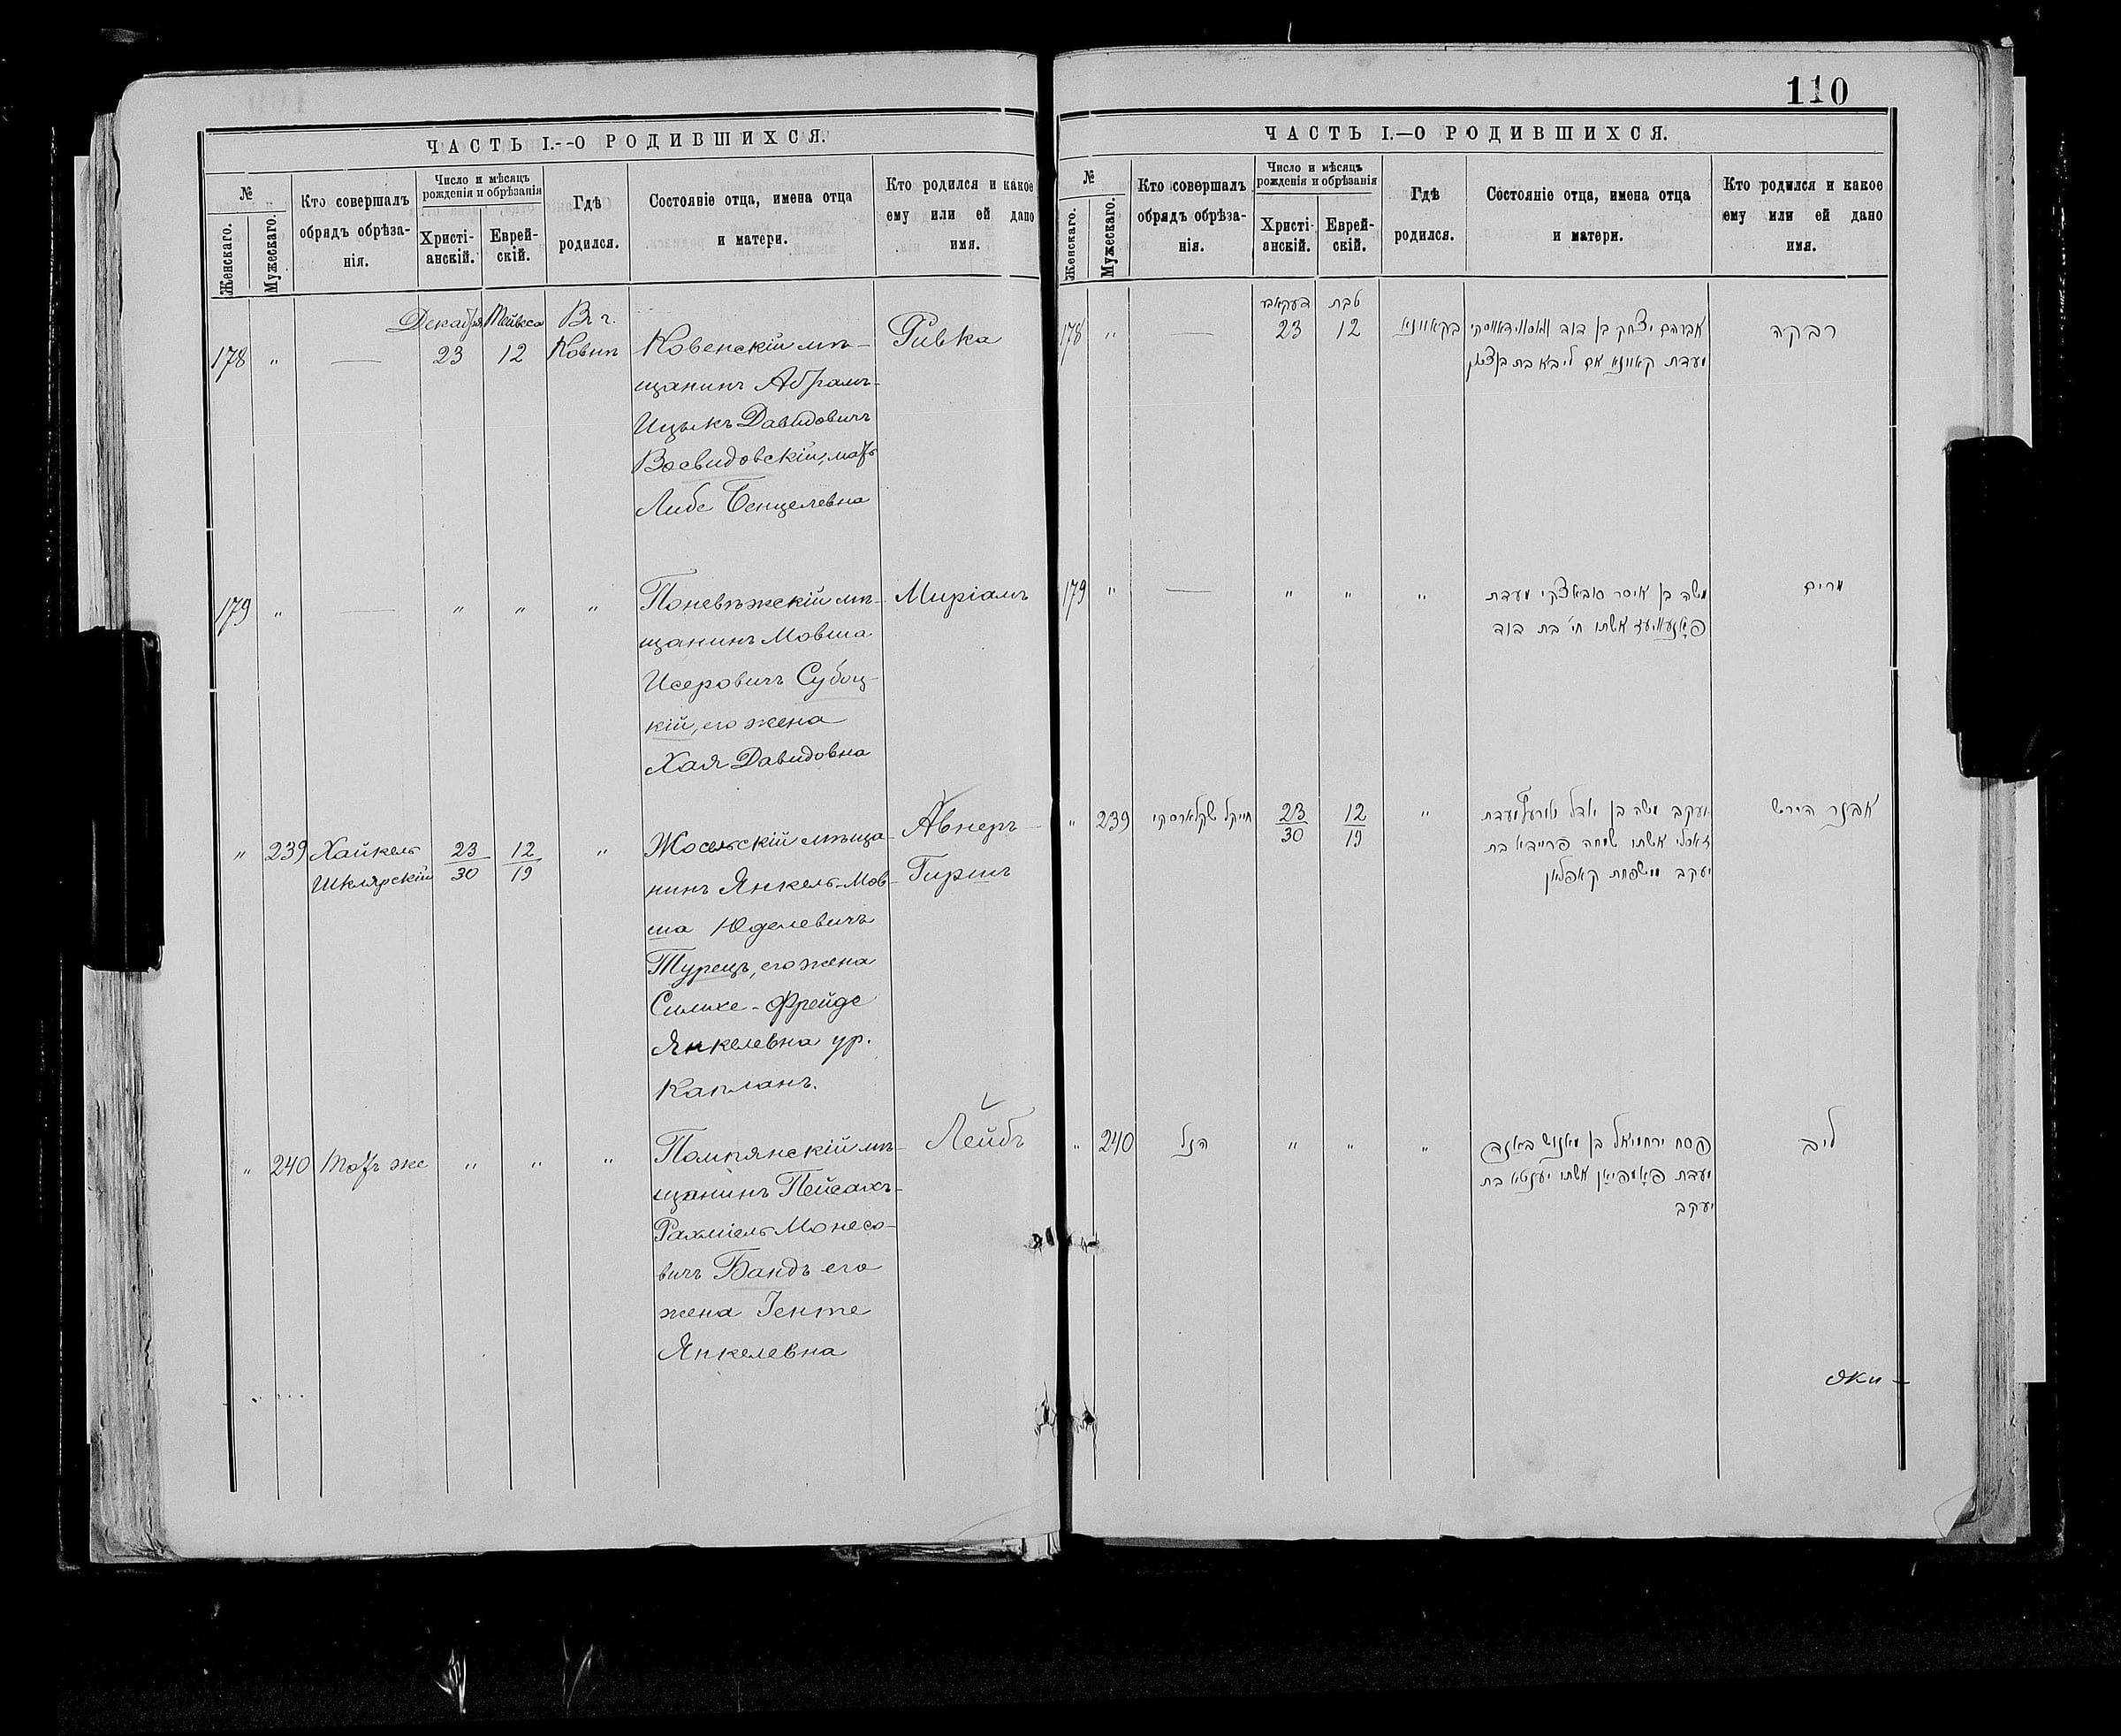 110
ЧАСТЬ I.--О РОДИВШИХСЯ.
№
Женскаго.
Мужескаго.
Кто совершалъ
обрядъ обрѣза-
нія.
Число и мѣсяцъ
рожденія и обрѣзанія
Христі-
анскій.
Еврей-
скій.
Гдѣ
родился.
Состояніе отца, имена отца
и матери.
Кто родился и какое
ему или ей дано
имя.
178 " — Декабря 23 Тейвеса 12 Въ г. Ковнѣ
Ковенскій мѣ-
щанинъ Абрамъ-
Ицыкъ Давидовичъ
мать
Либе Бенцелевна
Ривка
179 " — " " "
Поневѣжскій мѣ-
щанинъ Мовша
Исеровичъ Субоц-
кій, его жена
Хая Давидовна
Миріамъ
" 239 Хайкель
Шклярскій
23/30 12/19 "
мѣща-
нинъ Янкель-Мов-
ша Юделевичъ
Турецъ, его жена
Симхе-Фрейде
Янкелевна ур.
Капланъ.
Авнеръ-
Гиршъ
" 240 Тотъ же " " "
Помпянскій мѣ-
щанинъ Пейсахъ-
Рахміель Монесо-
вичъ Бандъ его
жена Іенте
Янкелевна
Лейбъ
ЧАСТЬ I.—О РОДИВШИХСЯ.
№
Женскаго.
Мужескаго.
Кто совершалъ
обрядъ обрѣза-
нія.
Число и мѣсяцъ
рожденія и обрѣзанія
Христі-
анскій.
Еврей-
скій.
Гдѣ
родился.
Состояніе отца, имена отца
и матери.
Кто родился и какое
ему или ей дано
имя.
178 " — דעקאבר 23 טבת 12 בקאוונא
אברהם יצחק בן דוד
מעדת קאוונא אם ליבא בת בן ציון
רבקה
179 " — " " "
משה בן איסר סובאצקי מעדת
פּאָנעוויעז אשתו חי' בת דוד
מרים
" 239 חייקל שקלארסקי 23/30 12/19 "
יעקב משה בן יודל
אשתו שמחה פריידא בת
יעקב ממשפחת קאפלאן
אבנר הירש
" 240 הנ"ל " " "
פסח ירחמיאל בן מאנוש באנד
מעדת פּאָמפּיאַן אשתו יענטא בת
יעקב
ליב